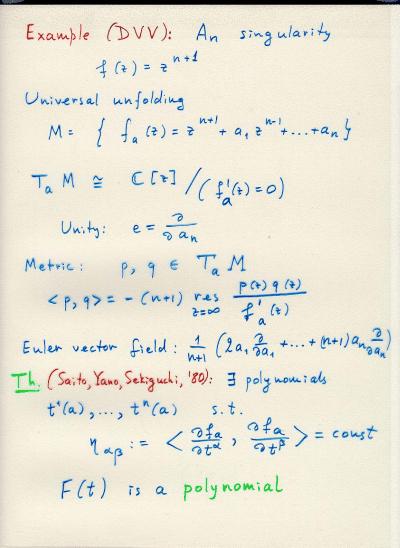 Example (DVV): An singularity
f(z) = z^{n+1}
Universal unfolding
M = { f_a(z) = z^{n+1} + a_1 z^{n-1} + ... + a_n }
T_a M ≅ ℂ[z] / (f'_a(z) = 0)
Unity: e = ∂/∂a_n
Metric: p, q ∈ T_a M
<p, q> = - (n+1) res_{z=∞} p(z) q(z) / f'_a(z)
Euler vector field: 1/(n+1) (2a_1 ∂/∂a_1 + ... + (n+1) a_n ∂/∂a_n)
Th. (Saito, Yano, Sekiguchi, '80): ∃ polynomials
t^1(a), ..., t^n(a) s.t.
η_{αβ} := < ∂f_a/∂t^α , ∂f_a/∂t^β > = const
F(t) is a polynomial